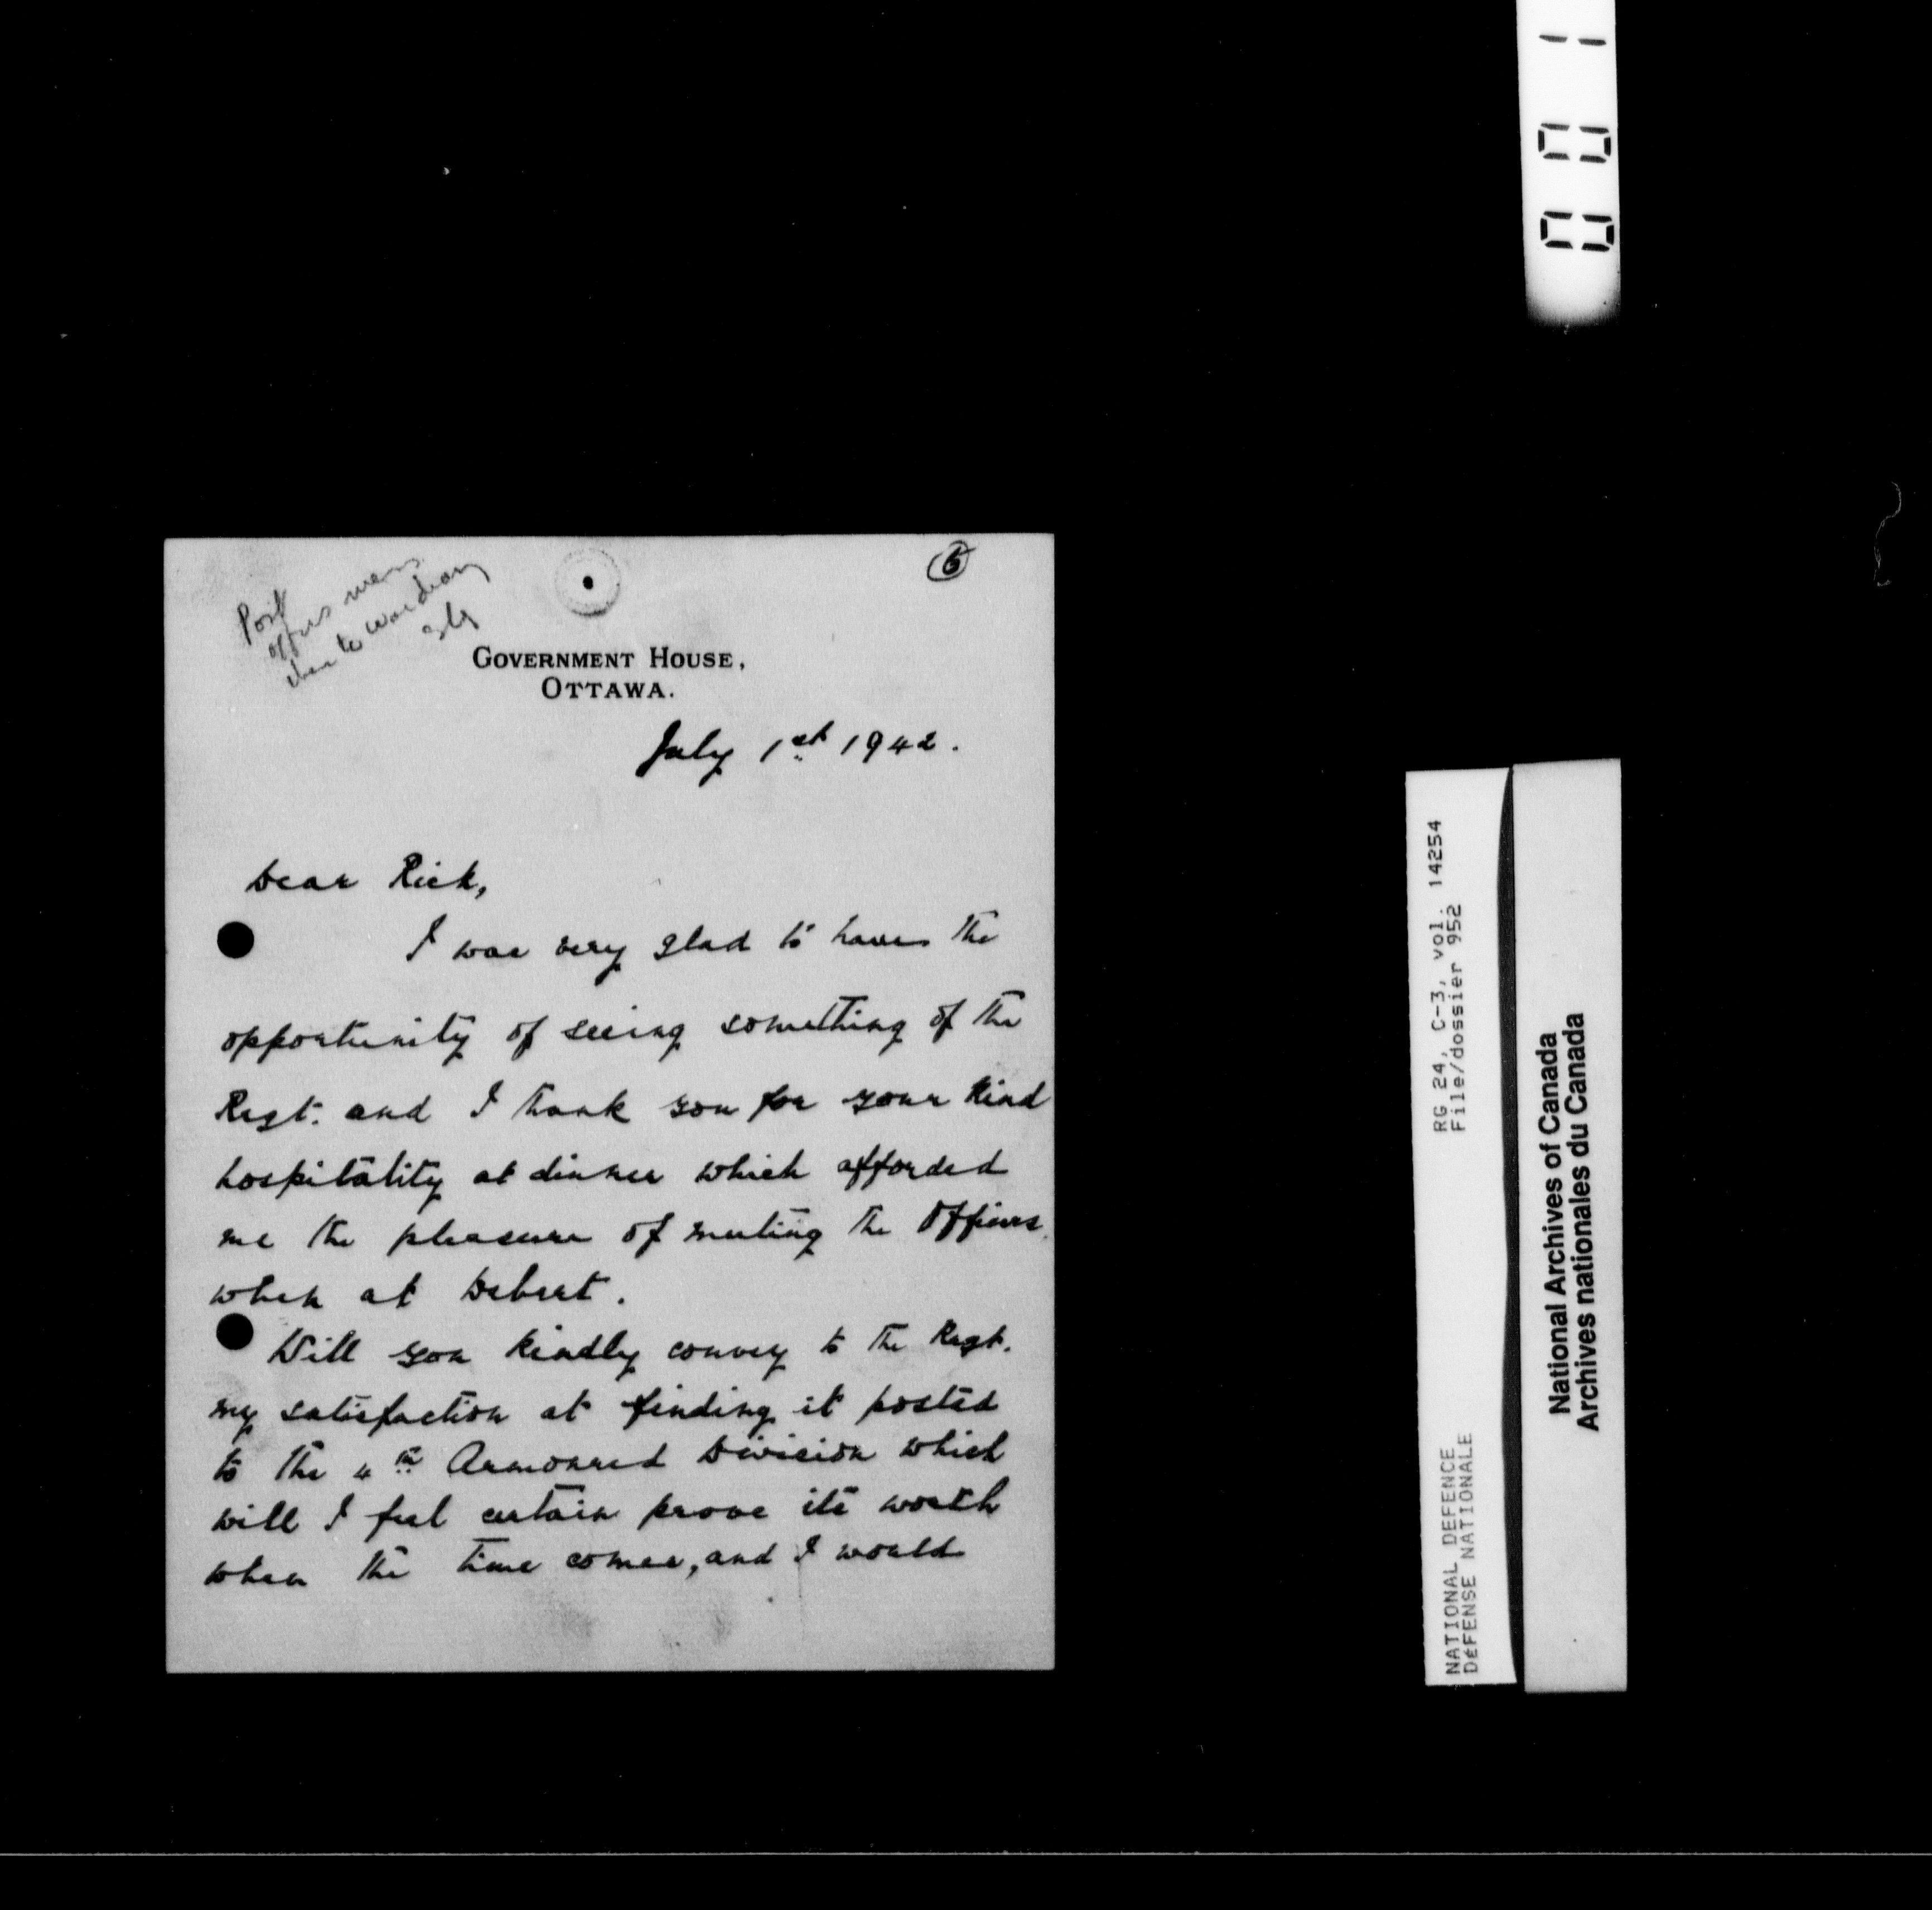 001
6
Post
officers mess
then to War Diary
GOVERNMENT HOUSE,
OTTAWA.
July 1st 1942.
Dear Rick,
I was very glad to have the
opportunity of seeing something of the
Regt. and I thank you for your kind
hospitality at dinner which afforded
me the pleasure of meeting the Officers
when at Debert.
Will you kindly convey to the Regt.
my satisfaction at finding it posted
to the 4th Armoured Division which
will I feel certain prove its worth
when the time comes, and I would
RG 24, C-3, vol. 14254
File/dossier 952
NATIONAL DEFENCE
DéFENSE NATIONALE
National Archives of Canada
Archives nationales du Canada